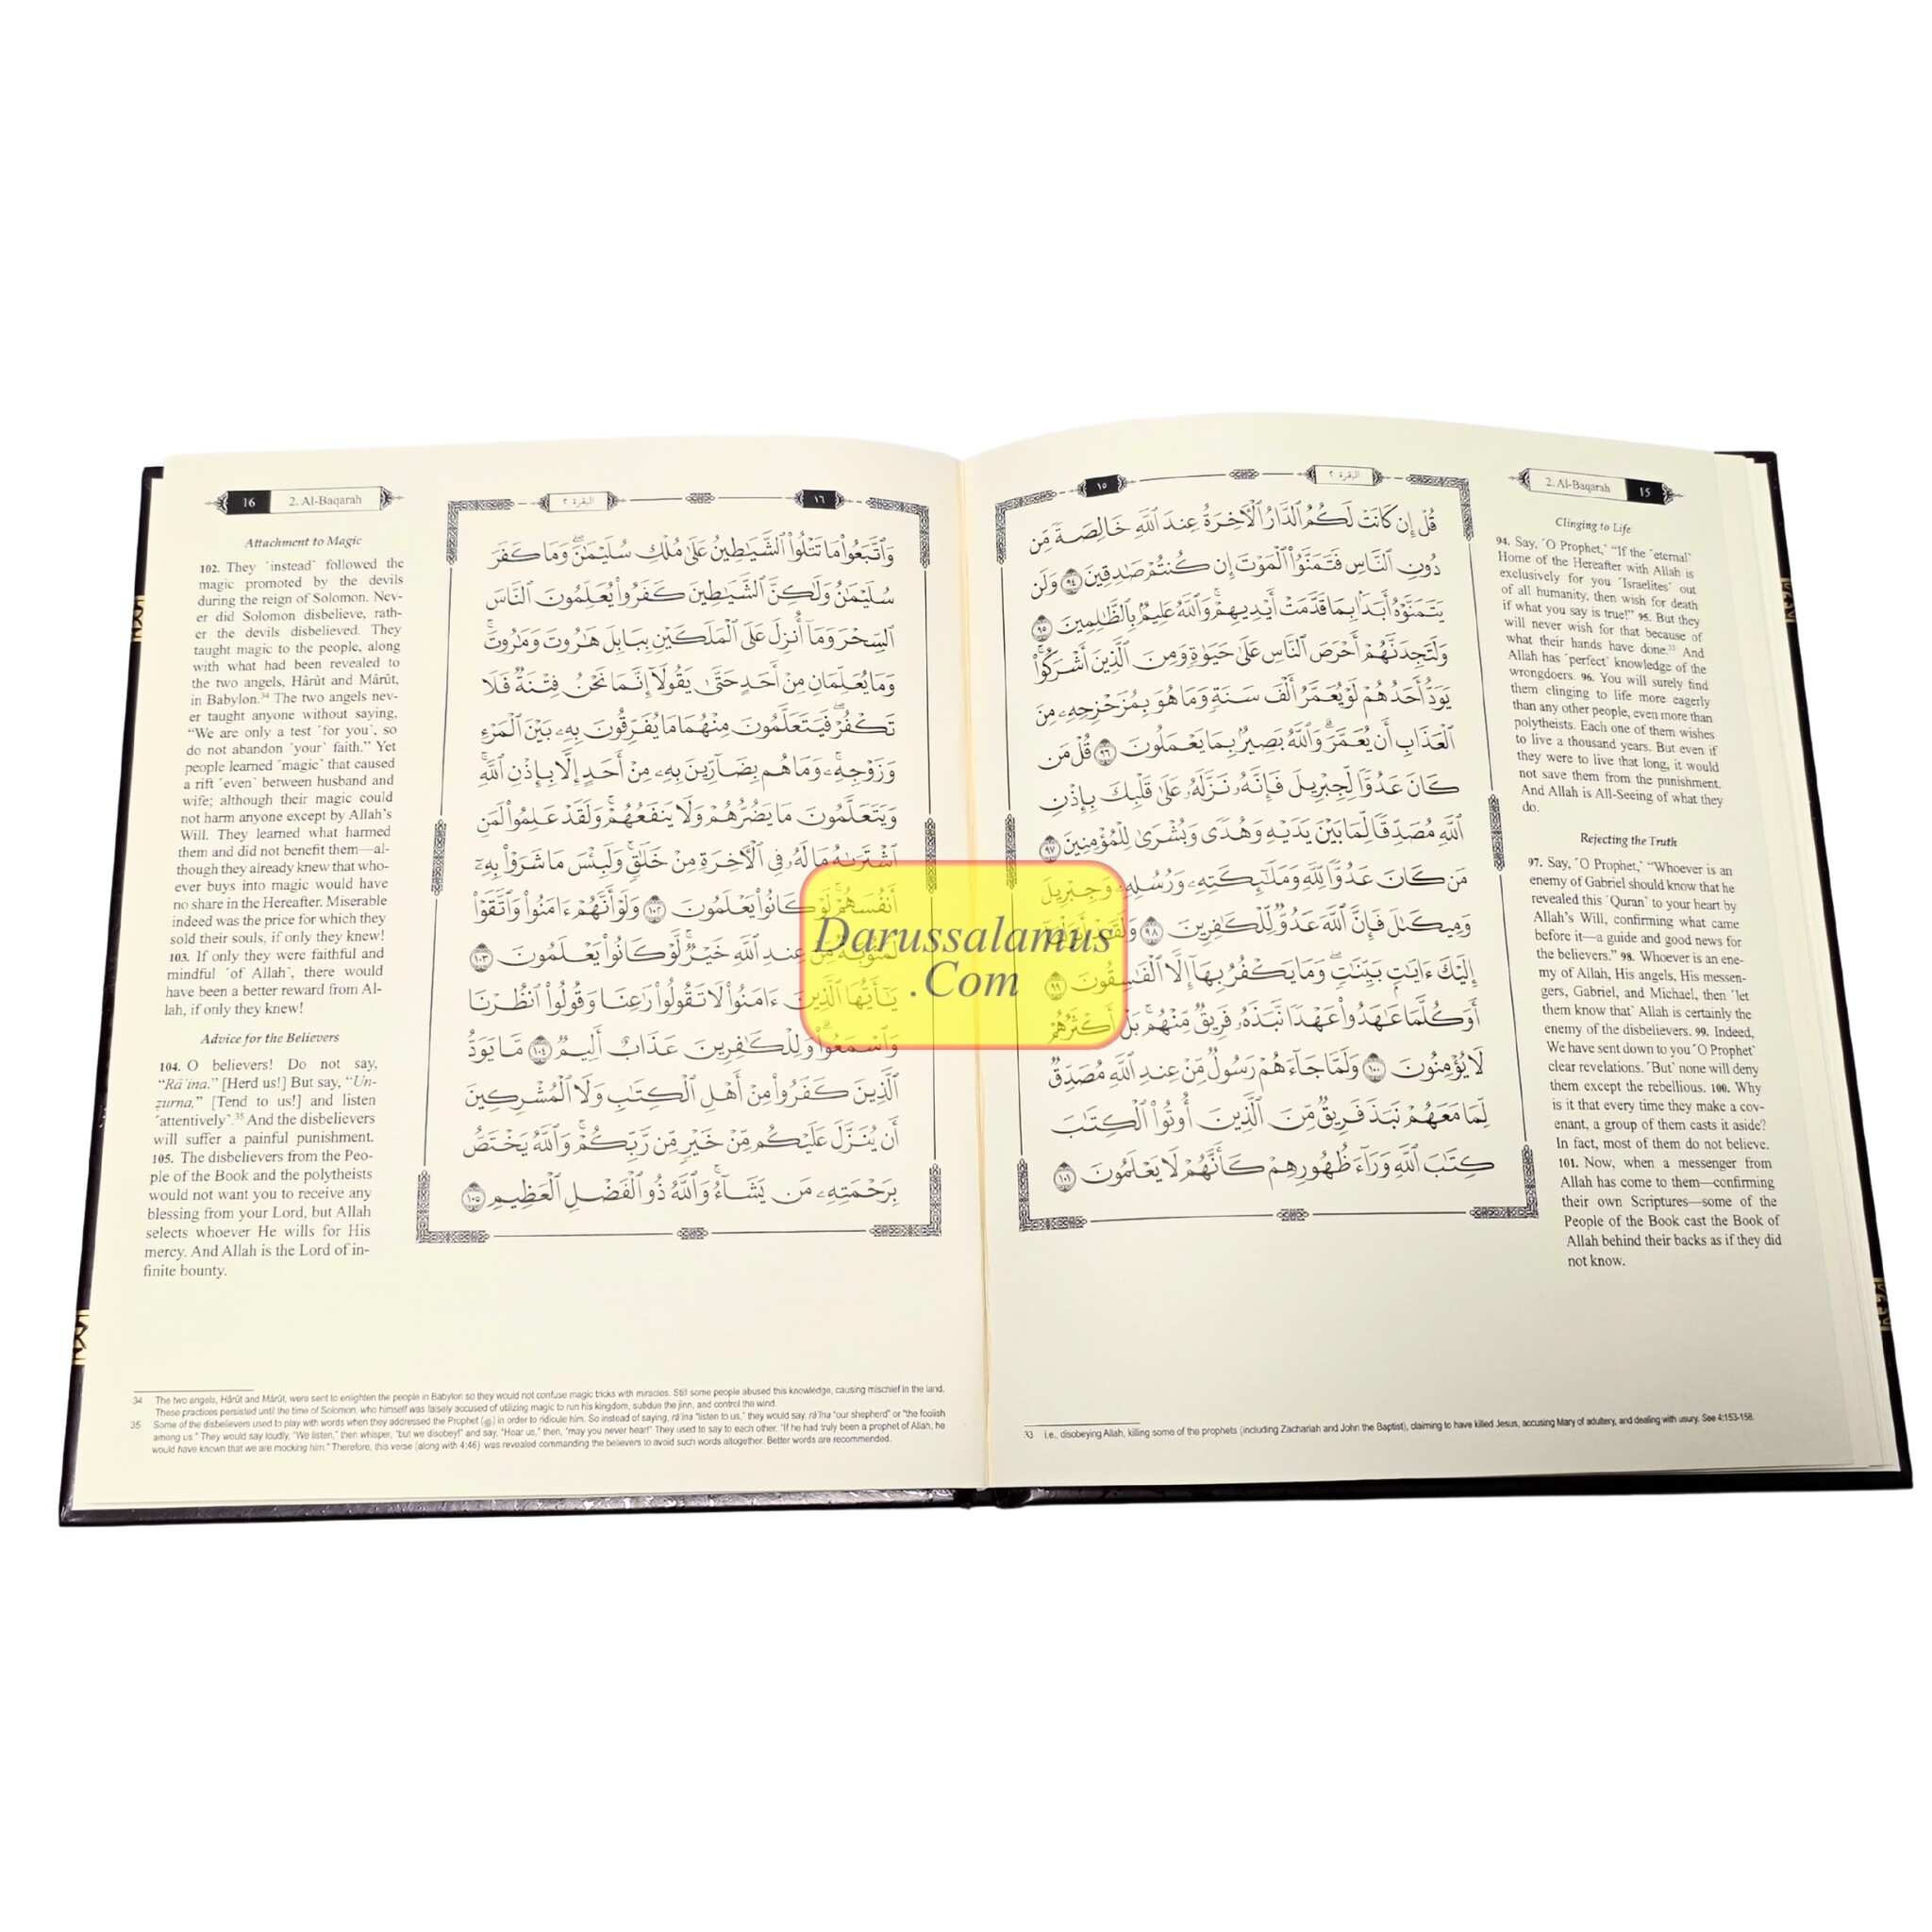 ١٥
البقرة ٢
قُلْ إِن كَانَتْ لَكُمُ ٱلدَّارُ ٱلْآخِرَةُ عِندَ ٱللَّهِ خَالِصَةً مِّن
دُونِ ٱلنَّاسِ فَتَمَنَّوُا۟ ٱلْمَوْتَ إِن كُنتُمْ صَٰدِقِينَ ٩٤ وَلَن
يَتَمَنَّوْهُ أَبَدًۢا بِمَا قَدَّمَتْ أَيْدِيهِمْ ۗ وَٱللَّهُ عَلِيمٌۢ بِٱلظَّٰلِمِينَ ٩٥
وَلَتَجِدَنَّهُمْ أَحْرَصَ ٱلنَّاسِ عَلَىٰ حَيَوٰةٍ وَمِنَ ٱلَّذِينَ أَشْرَكُوا۟ ۚ
يَوَدُّ أَحَدُهُمْ لَوْ يُعَمَّرُ أَلْفَ سَنَةٍ وَمَا هُوَ بِمُزَحْزِحِهِۦ مِنَ
ٱلْعَذَابِ أَن يُعَمَّرَ ۗ وَٱللَّهُ بَصِيرٌۢ بِمَا يَعْمَلُونَ ٩٦ قُلْ مَن
كَانَ عَدُوًّا لِّجِبْرِيلَ فَإِنَّهُۥ نَزَّلَهُۥ عَلَىٰ قَلْبِكَ بِإِذْنِ
ٱللَّهِ مُصَدِّقًا لِّمَا بَيْنَ يَدَيْهِ وَهُدًى وَبُشْرَىٰ لِلْمُؤْمِنِينَ ٩٧
مَن كَانَ عَدُوًّا لِّلَّهِ وَمَلَٰٓئِكَتِهِۦ وَرُسُلِهِۦ وَجِبْرِيلَ
وَمِيكَىٰلَ فَإِنَّ ٱللَّهَ عَدُوٌّ لِّلْكَٰفِرِينَ ٩٨ وَلَقَدْ أَنزَلْنَآ
إِلَيْكَ ءَايَٰتٍۭ بَيِّنَٰتٍ ۖ وَمَا يَكْفُرُ بِهَآ إِلَّا ٱلْفَٰسِقُونَ ٩٩
أَوَكُلَّمَا عَٰهَدُوا۟ عَهْدًا نَّبَذَهُۥ فَرِيقٌ مِّنْهُم ۚ بَلْ أَكْثَرُهُمْ
لَا يُؤْمِنُونَ ١٠٠ وَلَمَّا جَآءَهُمْ رَسُولٌ مِّنْ عِندِ ٱللَّهِ مُصَدِّقٌ
لِّمَا مَعَهُمْ نَبَذَ فَرِيقٌ مِّنَ ٱلَّذِينَ أُوتُوا۟ ٱلْكِتَٰبَ
كِتَٰبَ ٱللَّهِ وَرَآءَ ظُهُورِهِمْ كَأَنَّهُمْ لَا يَعْلَمُونَ ١٠١
2. Al-Baqarah 15
Clinging to Life
94. Say, ˹O Prophet,˺ “If the ˹eternal˺
Home of the Hereafter with Allah is
exclusively for you ˹Israelites˺ out
of all humanity, then wish for death
if what you say is true!” 95. But they
will never wish for that because of
what their hands have done.33 And
Allah has ˹perfect˺ knowledge of the
wrongdoers. 96. You will surely find
them clinging to life more eagerly
than any other people, even more than
polytheists. Each one of them wishes
to live a thousand years. But even if
they were to live that long, it would
not save them from the punishment.
And Allah is All-Seeing of what they
do.
Rejecting the Truth
97. Say, ˹O Prophet,˺ “Whoever is an
enemy of Gabriel should know that he
revealed this ˹Quran˺ to your heart by
Allah’s Will, confirming what came
before it—a guide and good news for
the believers.” 98. Whoever is an ene-
my of Allah, His angels, His messen-
gers, Gabriel, and Michael, then ˹let
them know that˺ Allah is certainly the
enemy of the disbelievers. 99. Indeed,
We have sent down to you ˹O Prophet˺
clear revelations. ˹But˺ none will deny
them except the rebellious. 100. Why
is it that every time they make a cov-
enant, a group of them casts it aside?
In fact, most of them do not believe.
101. Now, when a messenger from
Allah has come to them—confirming
their own Scriptures—some of the
People of the Book cast the Book of
Allah behind their backs as if they did
not know.
33 i.e., disobeying Allah, killing some of the prophets (including Zachariah and John the Baptist), claiming to have killed Jesus, accusing Mary of adultery, and dealing with usury. See 4:153-158.
١٦
البقرة ٢
وَٱتَّبَعُوا۟ مَا تَتْلُوا۟ ٱلشَّيَٰطِينُ عَلَىٰ مُلْكِ سُلَيْمَٰنَ ۖ وَمَا كَفَرَ
سُلَيْمَٰنُ وَلَٰكِنَّ ٱلشَّيَٰطِينَ كَفَرُوا۟ يُعَلِّمُونَ ٱلنَّاسَ
ٱلسِّحْرَ وَمَآ أُنزِلَ عَلَى ٱلْمَلَكَيْنِ بِبَابِلَ هَٰرُوتَ وَمَٰرُوتَ ۚ
وَمَا يُعَلِّمَانِ مِنْ أَحَدٍ حَتَّىٰ يَقُولَآ إِنَّمَا نَحْنُ فِتْنَةٌ فَلَا
تَكْفُرْ ۖ فَيَتَعَلَّمُونَ مِنْهُمَا مَا يُفَرِّقُونَ بِهِۦ بَيْنَ ٱلْمَرْءِ
وَزَوْجِهِۦ ۚ وَمَا هُم بِضَآرِّينَ بِهِۦ مِنْ أَحَدٍ إِلَّا بِإِذْنِ ٱللَّهِ ۚ
وَيَتَعَلَّمُونَ مَا يَضُرُّهُمْ وَلَا يَنفَعُهُمْ ۚ وَلَقَدْ عَلِمُوا۟ لَمَنِ
ٱشْتَرَىٰهُ مَا لَهُۥ فِى ٱلْآخِرَةِ مِنْ خَلَٰقٍ ۚ وَلَبِئْسَ مَا شَرَوْا۟ بِهِۦٓ
أَنفُسَهُمْ ۚ لَوْ كَانُوا۟ يَعْلَمُونَ ١٠٢ وَلَوْ أَنَّهُمْ ءَامَنُوا۟ وَٱتَّقَوْا۟
لَمَثُوبَةٌ مِّنْ عِندِ ٱللَّهِ خَيْرٌ ۖ لَّوْ كَانُوا۟ يَعْلَمُونَ ١٠٣
يَٰٓأَيُّهَا ٱلَّذِينَ ءَامَنُوا۟ لَا تَقُولُوا۟ رَٰعِنَا وَقُولُوا۟ ٱنظُرْنَا
وَٱسْمَعُوا۟ ۗ وَلِلْكَٰفِرِينَ عَذَابٌ أَلِيمٌ ١٠٤ مَّا يَوَدُّ
ٱلَّذِينَ كَفَرُوا۟ مِنْ أَهْلِ ٱلْكِتَٰبِ وَلَا ٱلْمُشْرِكِينَ
أَن يُنَزَّلَ عَلَيْكُم مِّنْ خَيْرٍ مِّن رَّبِّكُمْ ۗ وَٱللَّهُ يَخْتَصُّ
بِرَحْمَتِهِۦ مَن يَشَآءُ ۚ وَٱللَّهُ ذُو ٱلْفَضْلِ ٱلْعَظِيمِ ١٠٥
16 2. Al-Baqarah
Attachment to Magic
102. They ˹instead˺ followed the
magic promoted by the devils
during the reign of Solomon. Nev-
er did Solomon disbelieve, rath-
er the devils disbelieved. They
taught magic to the people, along
with what had been revealed to
the two angels, Hârût and Mârût,
in Babylon.34 The two angels nev-
er taught anyone without saying,
“We are only a test ˹for you˺, so
do not abandon ˹your˺ faith.” Yet
people learned ˹magic˺ that caused
a rift ˹even˺ between husband and
wife; although their magic could
not harm anyone except by Allah’s
Will. They learned what harmed
them and did not benefit them—al-
though they already knew that who-
ever buys into magic would have
no share in the Hereafter. Miserable
indeed was the price for which they
sold their souls, if only they knew!
103. If only they were faithful and
mindful ˹of Allah˺, there would
have been a better reward from Al-
lah, if only they knew!
Advice for the Believers
104. O believers! Do not say,
“Râ’ina.” [Herd us!] But say, “Un-
ẓurna,” [Tend to us!] and listen
˹attentively˺.35 And the disbelievers
will suffer a painful punishment.
105. The disbelievers from the Peo-
ple of the Book and the polytheists
would not want you to receive any
blessing from your Lord, but Allah
selects whoever He wills for His
mercy. And Allah is the Lord of in-
finite bounty.
34 The two angels, Hârût and Mârût, were sent to enlighten the people in Babylon so they would not confuse magic tricks with miracles. Still some people abused this knowledge, causing mischief in the land.
These practices persisted until the time of Solomon, who himself was falsely accused of utilizing magic to run his kingdom, subdue the jinn, and control the wind.
35 Some of the disbelievers used to play with words when they addressed the Prophet (ﷺ) in order to ridicule him. So instead of saying, râ’ina “listen to us,” they would say, râ’îna “our shepherd” or “the foolish
among us.” They would say loudly, “We listen,” then whisper, “but we disobey!” and say, “Hear us,” then, “may you never hear!” They used to say to each other, “If he had truly been a prophet of Allah, he
would have known that we are mocking him.” Therefore, this verse (along with 4:46) was revealed commanding the believers to avoid such words altogether. Better words are recommended.
Darussalamus
.Com